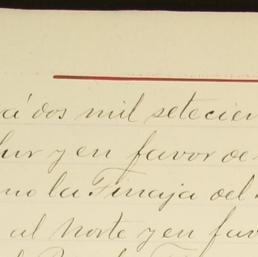 á dos mil setecien
Sur y en favor de
no la Tinaja del
al Norte y en fav